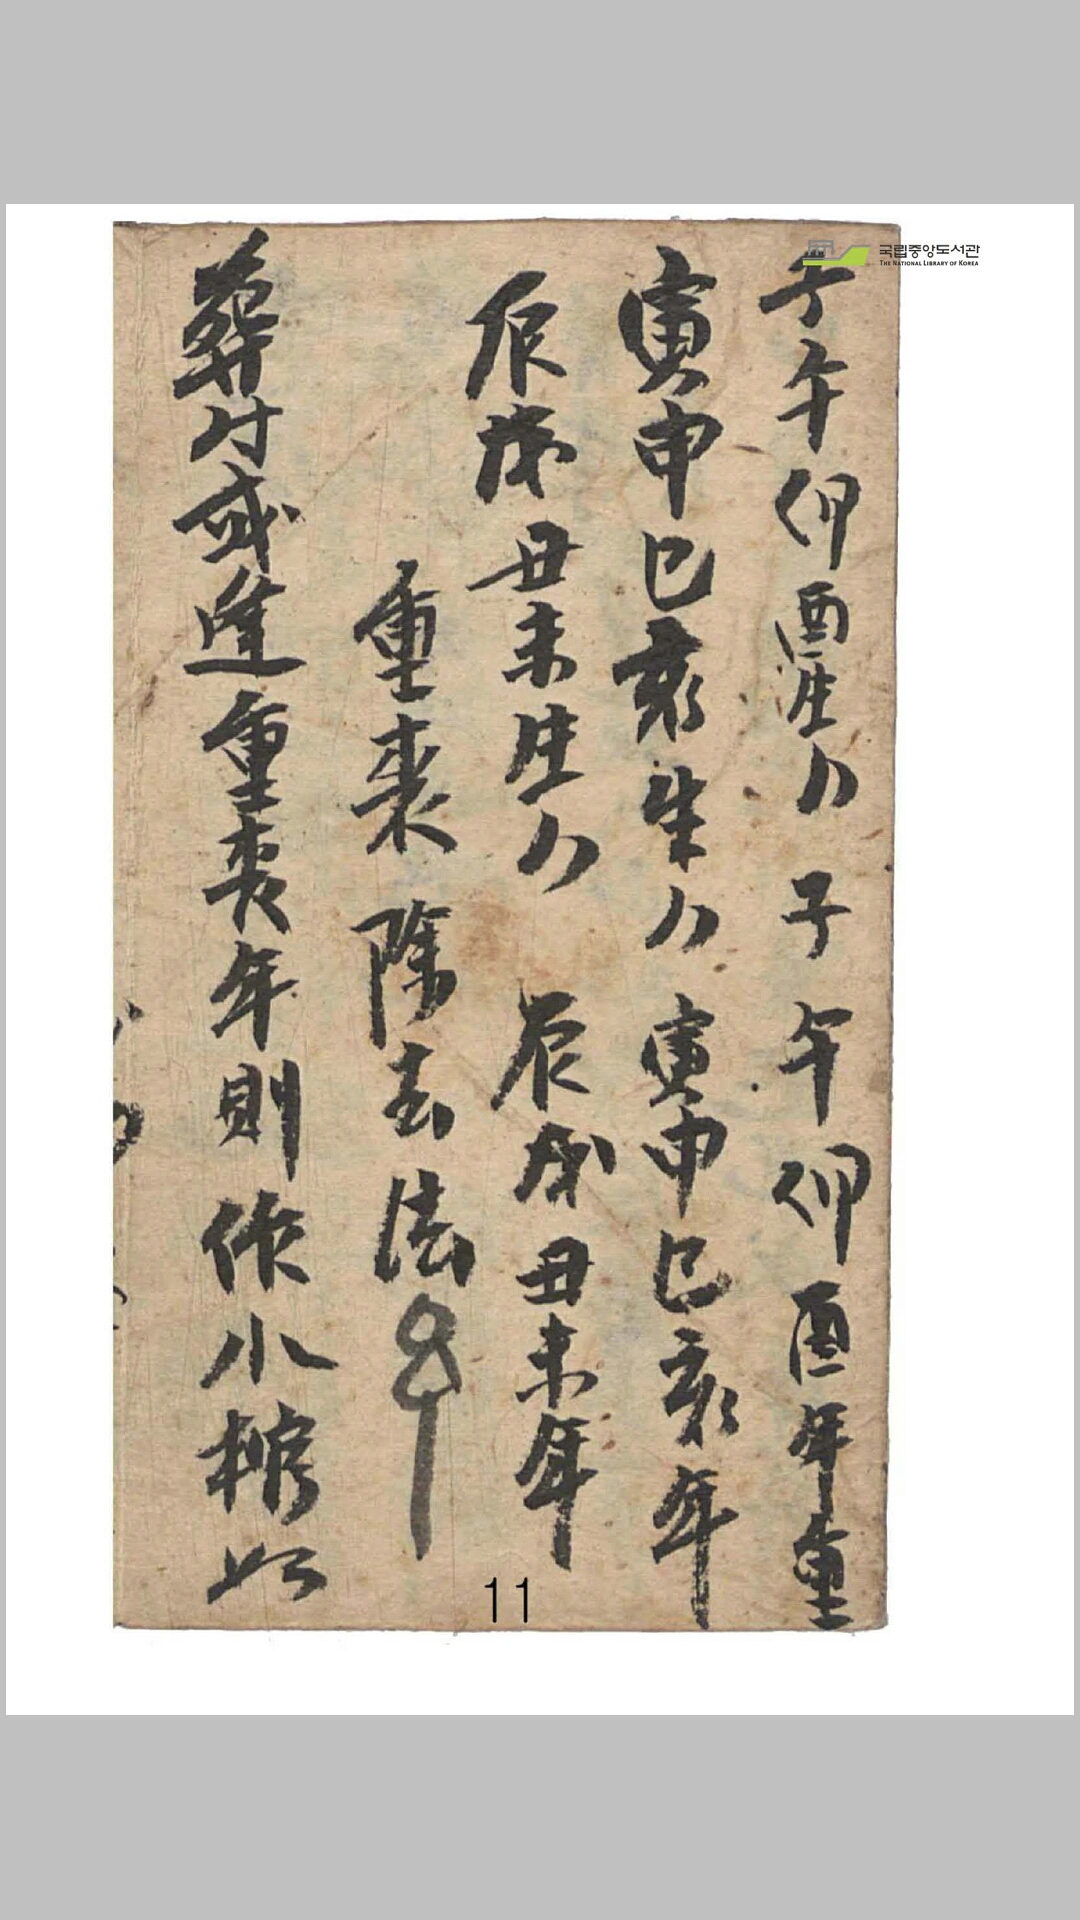 국립중앙도서관
THE NATIONAL LIBRARY OF KOREA
子午卯酉生人 子午卯酉年重
寅申巳亥生人 寅申巳亥年
辰戌丑未生人 辰戌丑未年
重喪除去法
葬付或逢重喪年則作小棺以
11